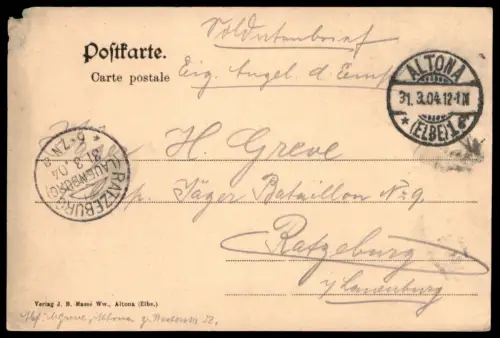 Postkarte.
Carte postale
Soldatenbrief
Eig. Angel. d. Empf
ALTONA
31.3.04.12-1N
* (ELBE) 1
H. Greve
Jäger Bataillon No 9
Ratzeburg
i/Lauenburg
RATZEBURG
(LAUENBURG)
31.3.04
6-7N
Verlag J. B. Massé Ww., Altona (Elbe.)
Greve, Altona